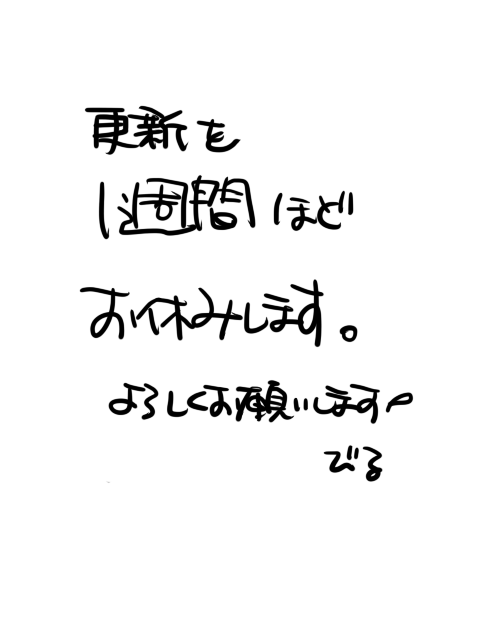 更新を
1週間ほど
お休みします。
よろしくお願いします〜
びる